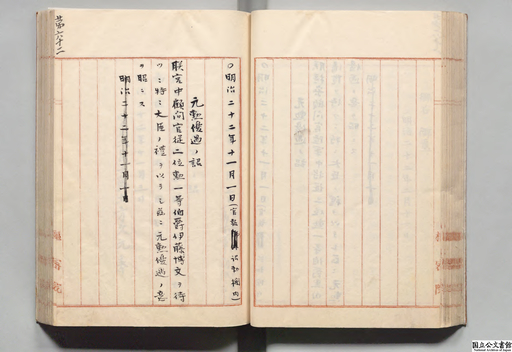 第六十二
○明治二十二年十一月一日(官報 詔勅欄内)
元勲優遇ノ詔
朕宮中顧問官従二位勲一等伯爵伊藤博文ヲ待
ツニ特ニ大臣ノ礼ヲ以テシ茲ニ元勲優遇ノ意
ヲ昭ニス
明治二十二年十一月一日
国立公文書館
National Archives of Japan